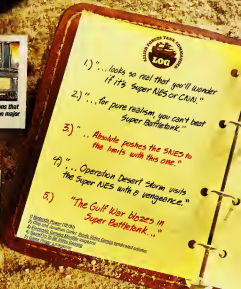 ons that
n major
LOG
1.) "...looks so real that you'll wonder
if it's Super NES or CNN."
2.) "...for pure realism, you can't beat
Super Battletank."
3.) "... Absolute pushes the SNES to
the limits with this one."
4) "... Operation Desert Storm visits
the Super NES with a vengeance."
5.) "The Gulf War blazes in
Super Battletank..."
1) Nintendo Power